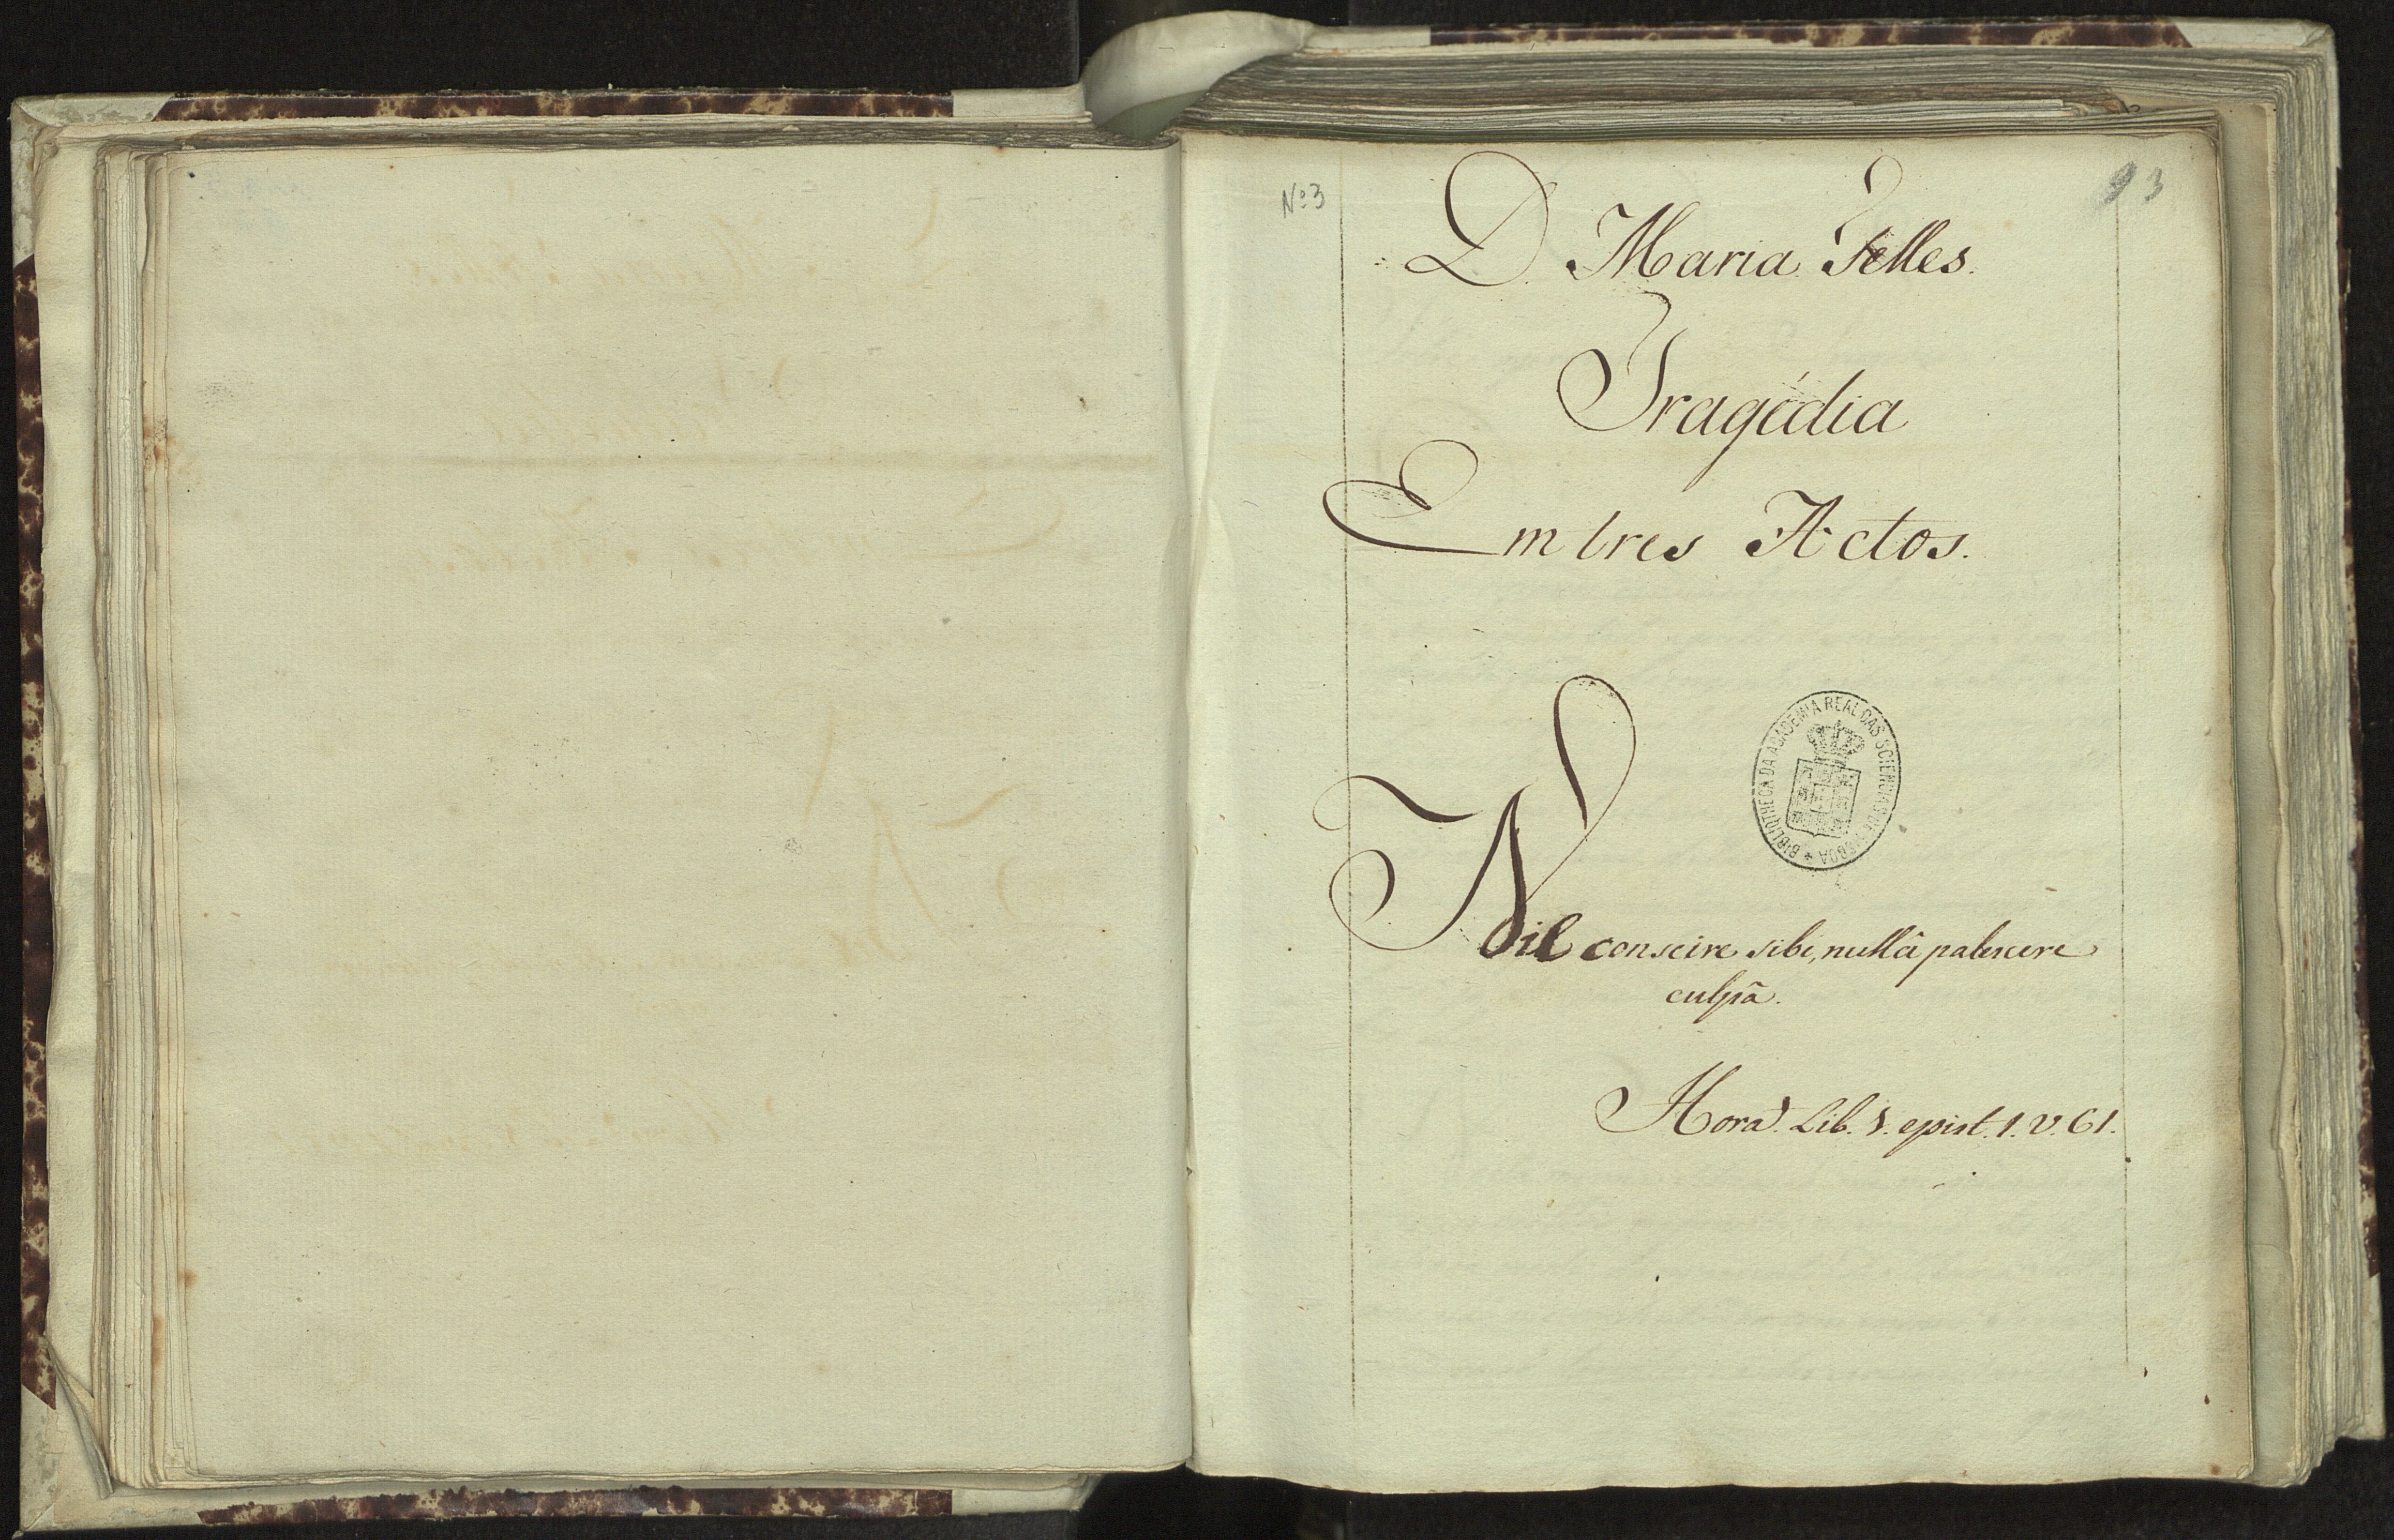 Nº 3
93
D. Maria Telles.
Tragédia
Em tres Actos.
BIBLIOTHECA DA ACADEMIA REAL DAS SCIENCIAS DE LISBOA
Nil conscire sibi, nullâ palescere
culpâ.
Horat. Lib. 1. epist. 1. v. 61.